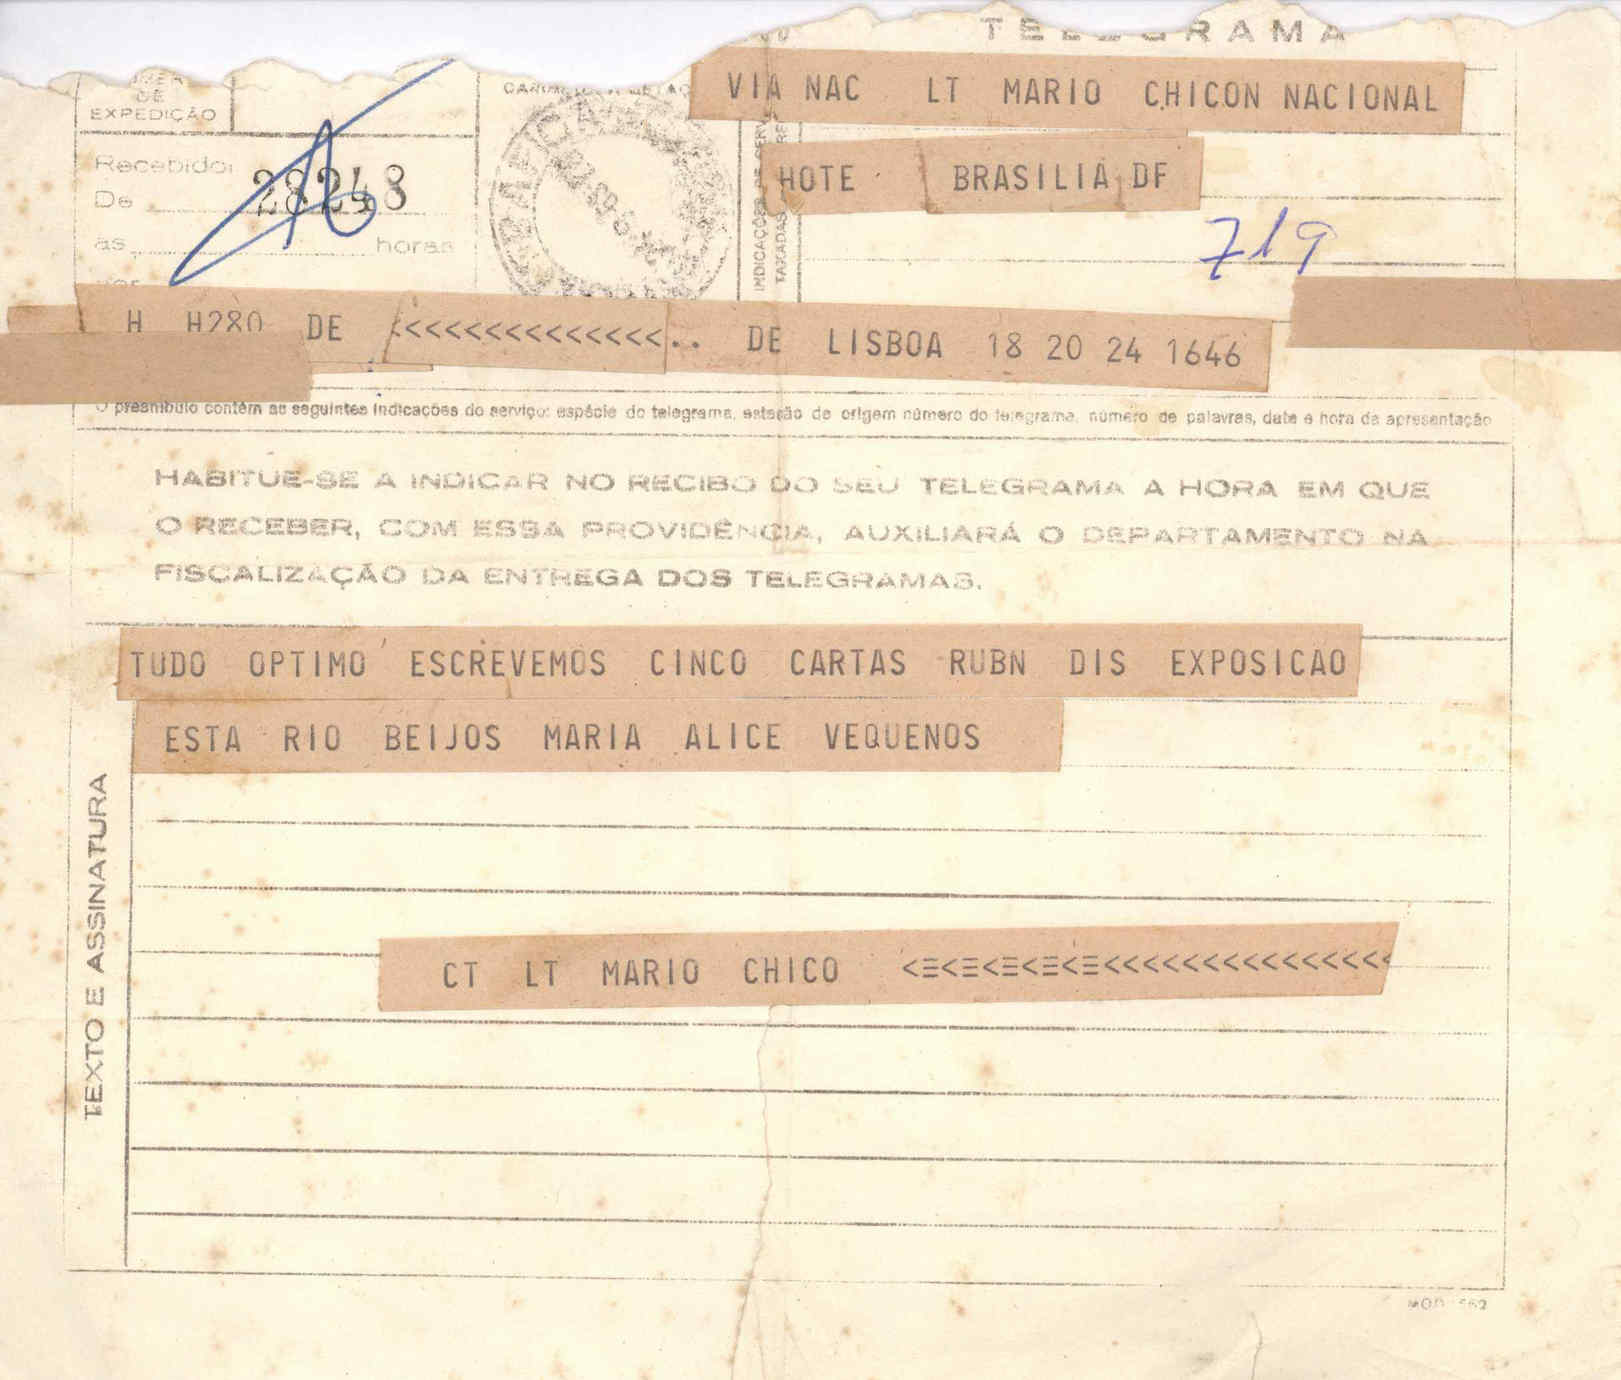 TELEGRAMA
VIA NAC LT MARIO CHICON NACIONAL
DE
EXPEDIÇÃO
HOTE BRASILIA DF
Recebido:
De 28248
às horas
INDICAÇÕES DE SERV
TAXADAS
719
H H280 DE <<<<<<<<<<<<<<.. DE LISBOA 18 20 24 1646
O preâmbulo contém as seguintes indicações do serviço: espécie do telegrama, estação de origem número do telegrama, número de palavras, data e hora da apresentação
HABITUE-SE A INDICAR NO RECIBO DO SEU TELEGRAMA A HORA EM QUE
O RECEBER, COM ESSA PROVIDÊNCIA, AUXILIARÁ O DEPARTAMENTO NA
FISCALIZAÇÃO DA ENTREGA DOS TELEGRAMAS.
TUDO OPTIMO ESCREVEMOS CINCO CARTAS RUBN DIS EXPOSICAO
ESTA RIO BEIJOS MARIA ALICE VEQUENOS
TEXTO E ASSINATURA
CT LT MARIO CHICO <≡<≡<≡<≡<≡<<<<<<<<<<<<<<